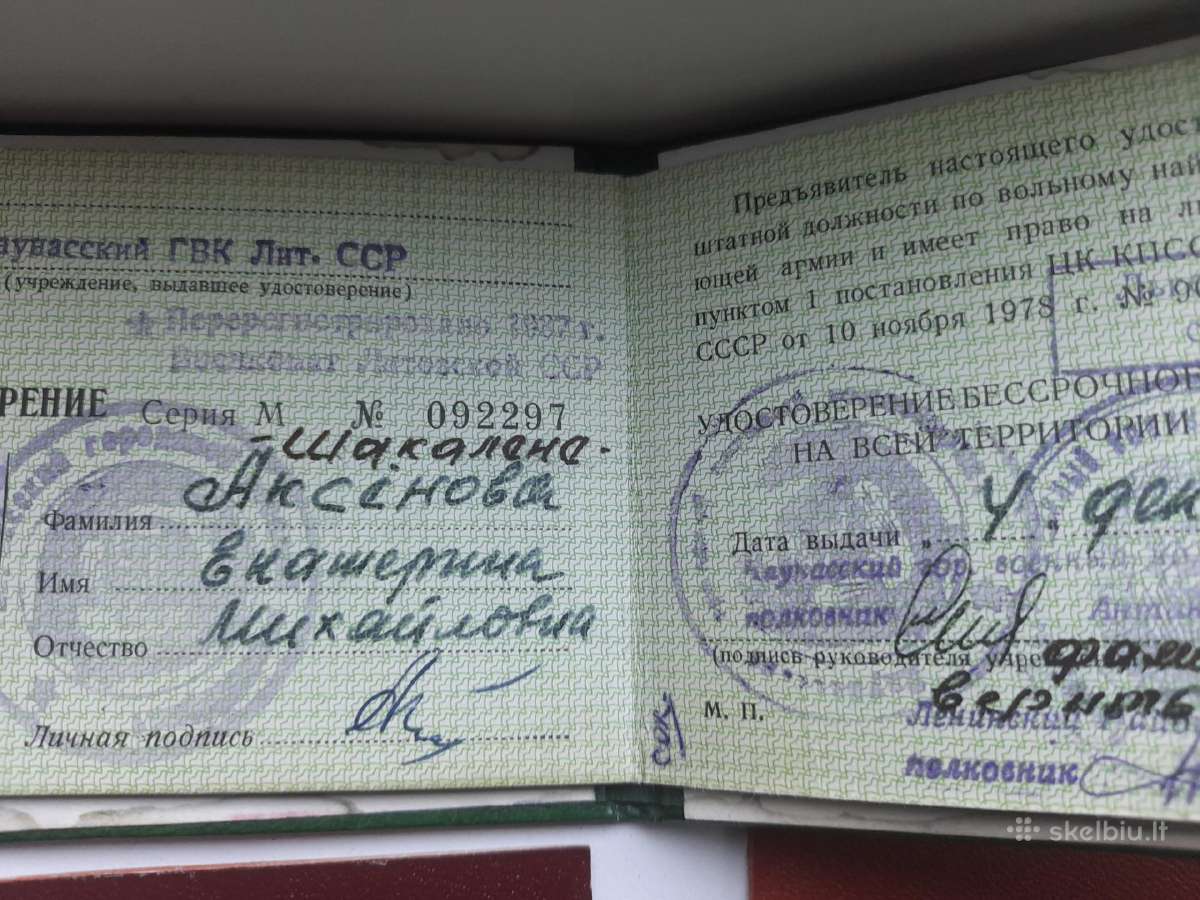 аунасский ГВК Лит. ССР
(учреждение, выдавшее удостоверение)
Перерегистрировано 1987 г.
Военкомат Литовской ССР
РЕНИЕ Серия М № 092297
-Шакалене-
Фамилия Аксёнова
Имя Екатерина
Отчество Михайловна
Личная подпись
Предъявитель настоящего удос
штатной должности по вольному най
ющей армии и имеет право на л
пунктом 1 постановления ЦК КПСС
СССР от 10 ноября 1978 г. № 9
УДОСТОВЕРЕНИЕ БЕССРОЧНОЕ
НА ВСЕЙ ТЕРРИТОРИИ
Дата выдачи „4" дек
Каунасский гор военный ко
полковник Анти
(подпись руководителя учре
фам
верить
М. П.
Ленинский райво
полковник
skelbiu.lt